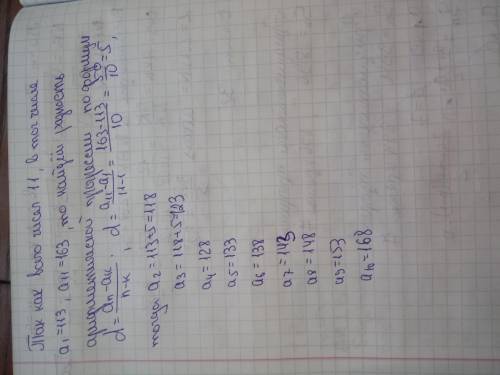 Так как всего чисел 11, в том числе
a₁=113, a₁₁=163, то найдём разность
арифметической прогрессии по формуле
d = (aₙ-aₖ)/(n-к), d = (a₁₁-a₁)/(11-1) = (163-113)/10 = 50/10 = 5,
тогда a₂=113+5=118
a₃=118+5=123
a₄=128
a₅=133
a₆=138
a₇=143
a₈=148
a₉=153
a₁₀=168